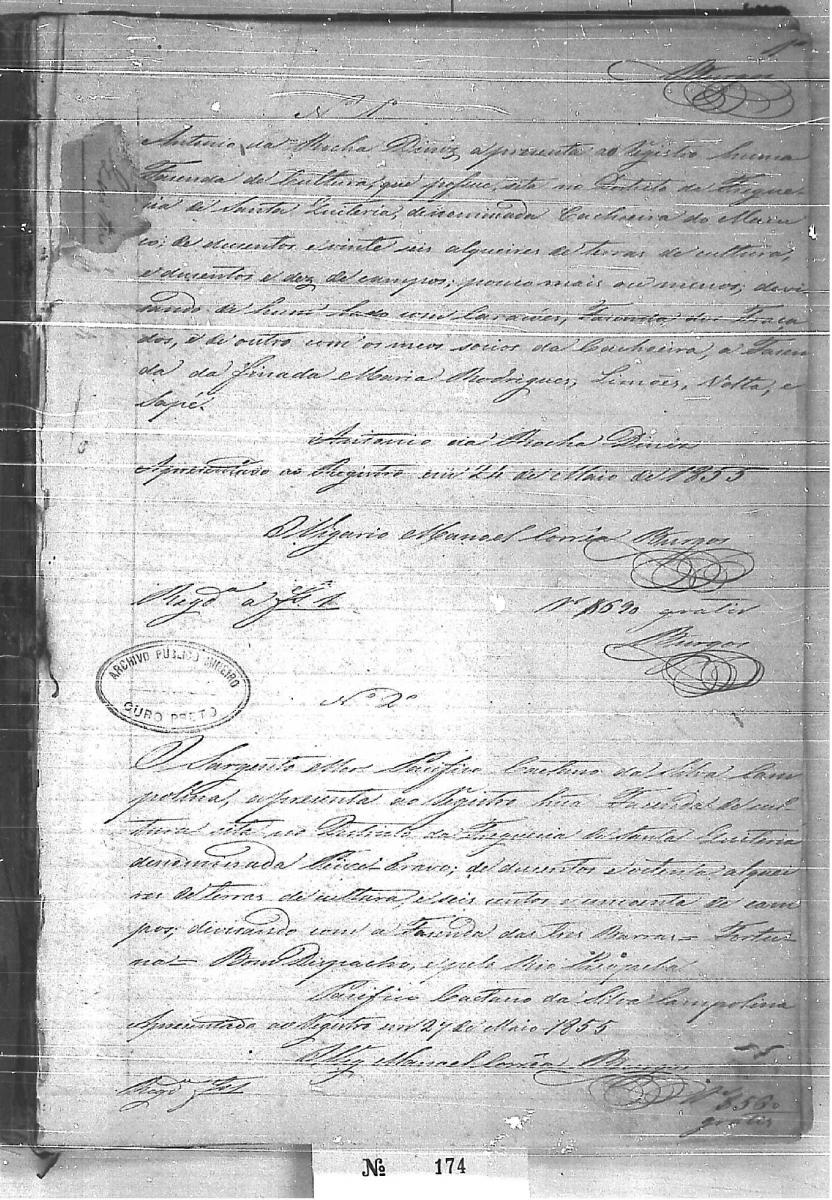 1º
Burgos
Nº 1º
Antonio da Rocha Diniz, apresenta ao Registro huma
Fazenda de Cultura, que possue, sita no Destrito da Fregue-
sia de Santa Quiteria, denominada Cachoeira do
de dusentos e vinte seis alqueires de terras de cultura,
e dusentos e dez de campos, pouco mais ou menos; devi-
zando de hum lado com
dos, e de outro com os meos socios da Cachoeira, a Fasen-
da da finada Maria Rodrigues, Limões, Volta, e
Sapé.
Antonio da Rocha Diniz
Apresentado ao Registro em 24 de Maio de 1855
O Vigario Manoel Corrêa Burgos
Regdº a fs. 1
gratis
Burgos
ARCHIVO PUBLICO MINEIRO
OURO PRETO
Nº 2º
O Sargento Mor Pacifico Caetano da Silva Cam-
polina, apresenta ao Registro hua Fasenda de cul-
tura sita no Destricto da Freguesia de Santa Quiteria
denominada Peixe bravo; de dusentos e oitenta alquei-
res de terras de cultura, e seis centos e cincoenta de cam-
pos; divisando com a Fasenda das tres Barras = Fortu-
na = Bom Despacho, e pelo Rio
Pacifico Caetano da Silva Campolina
Apresentado ao Registro em 27 de Maio 1855
O Vigº Manoel Corrêa Burgos
Regdº fs 1
gratis
Nº 174